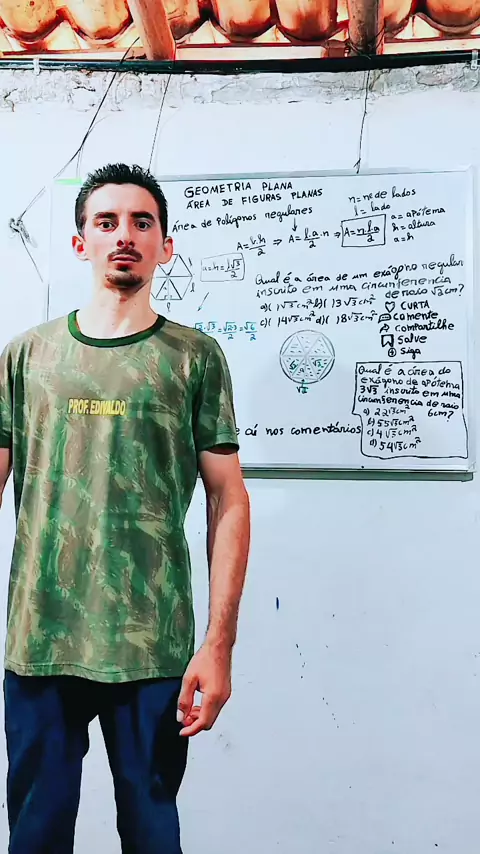 GEOMETRIA PLANA
ÁREA DE FIGURAS PLANAS
Área de Polígonos regulares
n = nº de lados
l = lado
a = apótema
h = altura
a = h
A = b.h/2 ⇒ A = l.a.n/2 ⇒ A = n.l.a/2
a = h = l√3/2
l
Qual é a área de um exágono regular
inscrito em uma circunferência
de raio √3cm?
c)( 14√3cm² d)( 18√3cm²
CURTA
comente
compartilhe
Salve
Siga
√3
Qual é a área do
exágono de apótema
3√3 inscrito em uma
circunferencia de raio
6cm?
a) 22√3cm²
b) 55√3cm²
c) 4√3cm²
d) 54√3cm²
e aí nos comentários
PROF. EDIVALDO